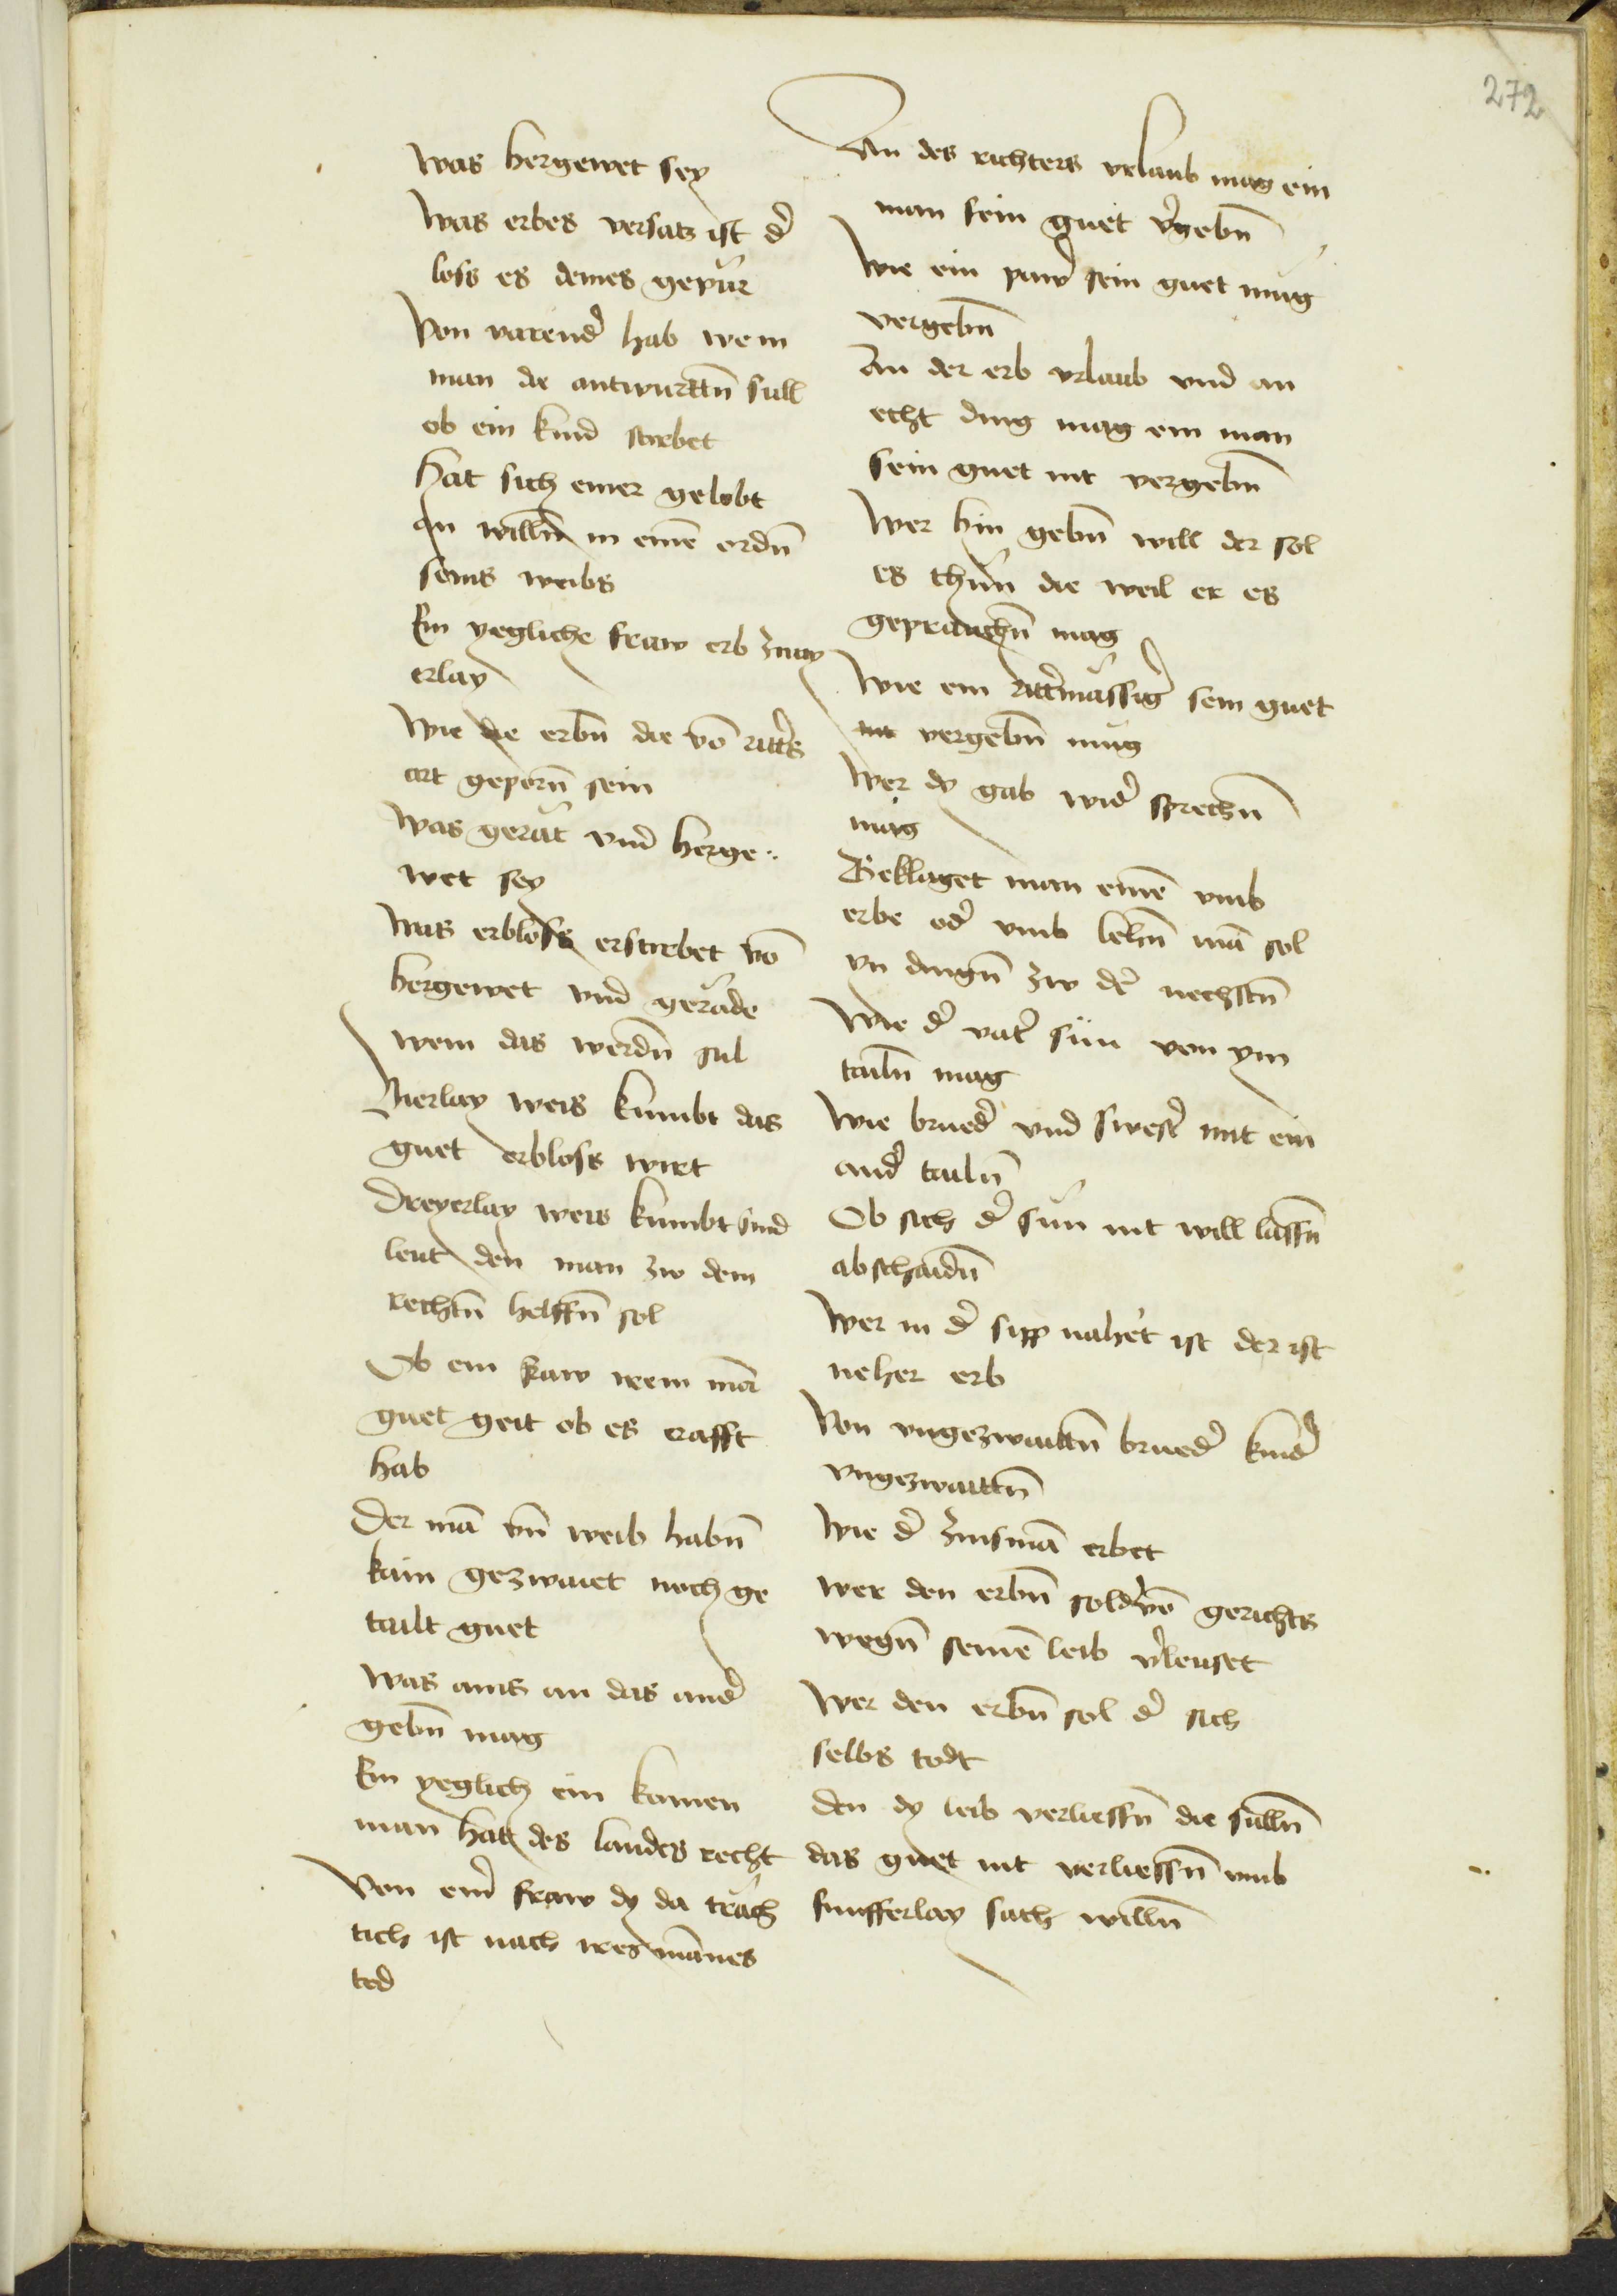 272
Was hergewet sey
Was erbes versatz ist d̉
loss es deines gepür
Von varend̉ hab wem
man die antwurttn̄ sull
ob ein kind stirbet
Hat sich einer gelobt
an willn̄ in einē ordn̄
seins weibs
Ein yegliche fraw erb zway
erlay
Wie die erbn̄ die vō ritt̉s
art geporn̄ sein
Was gerät vnd herge
wet sey
Was erbloss erstirbet vō
hergewet vnd geräde
wem das werdn̄ sul
Vierlay weis kumbt das
guet erbloss wirt
Dreyerlay weis kumbt sind
leut den man zw dem
rechtn̄ helffn̄ sol
Ob ein fraw irem mā
guet geit ob es crafft
hab
Der mā vn̄ weib habn̄
kain gezwaiet noch ge
tailt guet
Was ains an das and̉
gebn̄ mag
Ein yeglich ein komen
man hat des landes recht
Von ein̉ fraw dy da träch
tich ist nach ires mānes
tod
An des richters vrlaub mag ein
man sein guet v̉gebn̄
Wie ein paw̉ sein guet müg
vergebn̄
An der erb vrlaub vnd an
echt ding mag ein man
sein guet nit vergebn̄
Wer hin gebn̄ will der sol
es thün die weil er es
geprauchn̄ mag
Wie ein ritt̉mässig̉ sein guet
nit vergebn̄ müg
Wer dy gab wid̉ sprechn̄
müg
Beklaget man einē vmb
erbe od̉ vmb lehn̄ mā sol
yn dingn̄ zw d̉ nechstn̄
Wie d̉ vat̉ sün von ym
tailn̄ mag
Wie brued̉ vnd swest̉ mit ein
and̉ tailn̄
Ob sich d̉ sün nit will lassn̄
abschaidn̄
Wer in d̉ sipp nahet ist der ist
neher erb
Von vngezwaittn̄ brued̉ kind̉
vngezwaittn̄
Wie d̉ zinsmā erbet
Wer den erbn̄ sol d̉ vō gerichts
wegn̄ seinē leib v̉leuset
Wer den erbn̄ sol d̉ sich
selbs todt
Den dy leib verliessn̄ die sülln̄
das guet nit verliessn̄ vmb
funfferlay sach willn̄